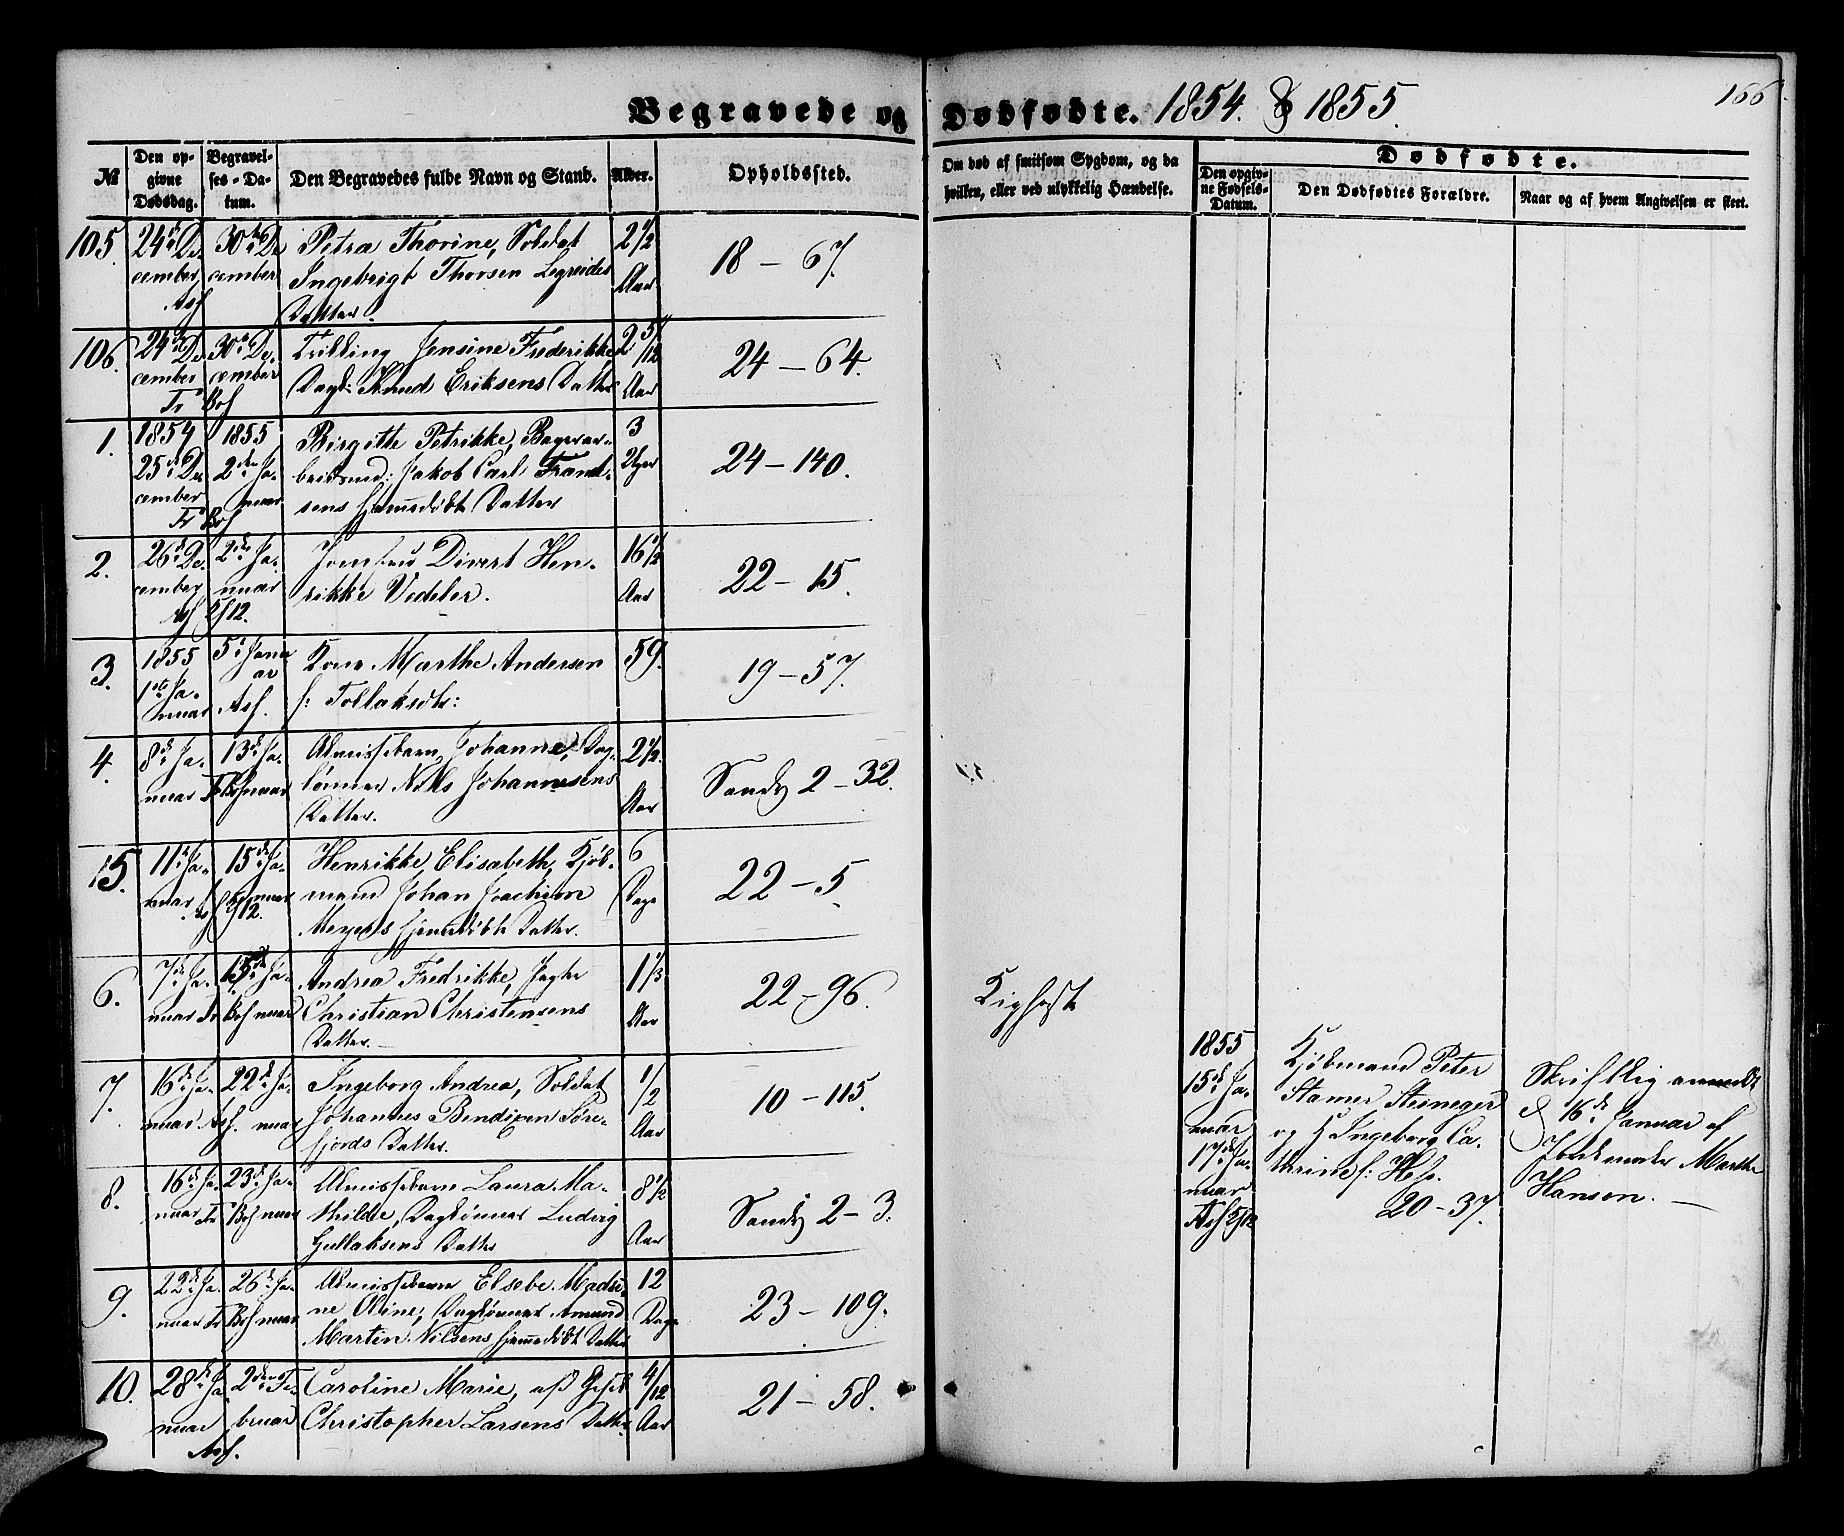 Begravede og Dødfødte. 1854. & 1855.
166.
№
Den op-
givne
Dødsdag.
Begravel-
ses-Da-
tum.
Den Begravedes fulde Navn og Stand.
Alder.
Opholdssted.
Om død af smitsom Sygdom, og da
hvilken, eller ved ulykkelig Hændelse.
Dødfødte.
Den opgiv-
ne Fødsels-
Datum.
Den Dødfødtes Forældre.
Naar og af hvem Angivelsen er skeet.
105.
24de De-
cember
Asf
30te De-
cember
Petra Thorine, Soldat
Ingebrigt Thorsen Legreides
Datter.
2 1/2
Aar
18 – 67.
106.
24de De-
cember
Fr Bos
30te De-
cember
Tvilling Jensine Frederikke
Dagl: Knud Eriksens Datter
2 5/12
Aar
24 – 64.
1.
1854
25de De-
cember
Fr Bos
1855
2den Ja-
nuar
Birgithe Petrikke,
Jakob Carl Frant-
sens hjemmedøbt Datter
3
Uger
24 – 140.
2.
26de De-
cember
Asf 2/12.
2den Ja-
nuar
Jomfru Divert Hen-
rikke Vedeler.
16 1/2
Aar
22 – 15.
3.
1855
1ste Ja-
nuar
5te Janu
ar
Asf.
Kone Marthe Andersen
f: Tollaksdtr:
59.
19 – 57.
4.
8de Ja-
nuar Fr
13de Ja-
Bos nuar
Almissebarn, Johanne, Dag-
lønner Nils Johannesens
Datter.
2 1/2.
Aar
Sandv 2 – 32.
5.
11te Ja-
nuar
15de Ja-
nuar
Henrikke Elisabeth, Kjøb-
mand Johan Joachim
Meyers hjemmedøbt Datter.
6
Dage
22 – 5.
6.
7de Ja-
nuar Fr
15de Ja-
Bos nuar
Andrea Fredrikke,
Christian Christensens
Datter. –
1 1/3
Aar
22 – 96.
Kighoste
7.
16de Ja-
nuar Asf.
22de Ja-
nuar
Ingeborg Andrea, Soldat
Johannes Bendixen Søre-
fjords Datter.
1/2
Aar
10 – 115.
1855
15de Ja-
nuar
17de Ja-
nuar
Asf 2/12
Kjøbmand Peter
Stamer Steineger
og H Ingeborg Ca-
thrine f: Hess.
20 – 37.
Skriftlig anmeldt
d 16de Januar af
Jordemoder Marthe
Hanson. –
8.
16de Ja-
nuar Fr
23de Ja-
Bos nuar
Almissebarn Laura Ma-
thilde, Daglønner Ludvig
Gullaksens Datter
8 1/2
Aar
Sandv 2 – 3.
9.
22de Ja-
nuar Fr
26de Ja-
Bos nuar
Almissebarn Elsebe Madsi-
ne Oline, Daglønner Amund
Martin Nilsens hjemmedøbt Datter
12
Dage
23 – 109.
10.
28de Ja-
nuar
Asf.
2den Fe-
bruar
Caroline Marie,
Christopher Larsens Datter
4/12
Aar
21 – 58.